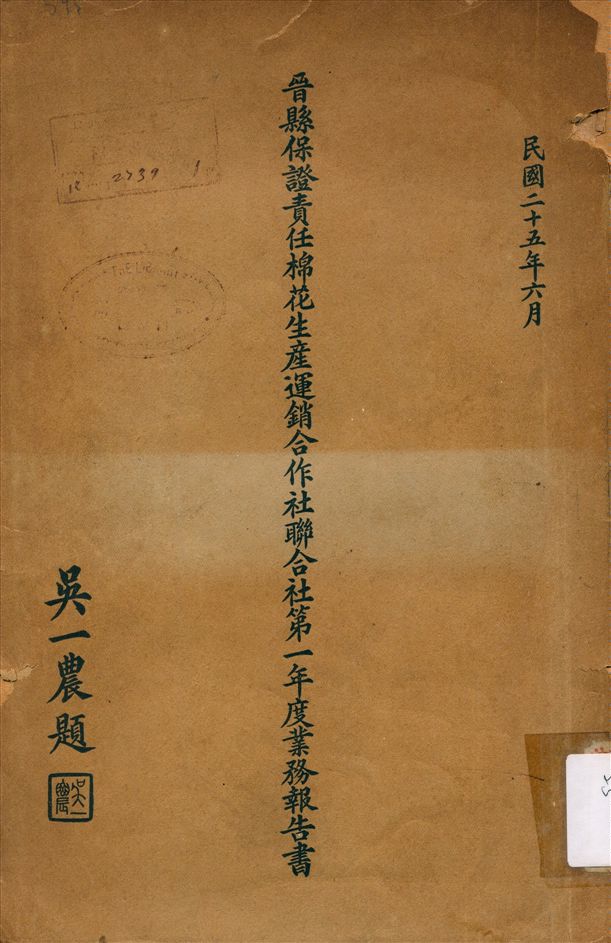 民國二十五年六月
晉縣保證責任棉花生産運銷合作社聯合社第一年度業務報告書
吳一農題
吳一農
2739
THE LIB